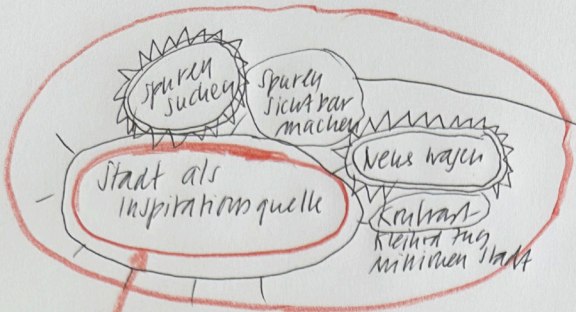 Spuren
suchen
Spuren
sichtbar
machen
Neues wagen
Stadt als
Inspirationsquelle
Kontrast-
Stadt